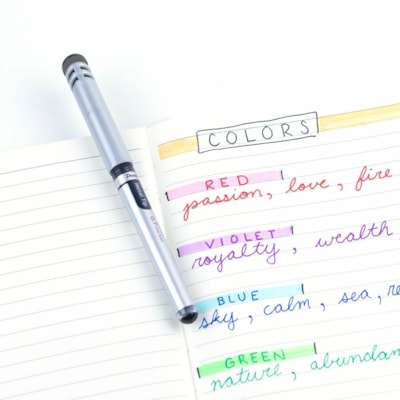 COLORS
RED
passion, love, fire
VIOLET
royalty, wealth,
BLUE
sky, calm, sea, re
GREEN
nature, abundan